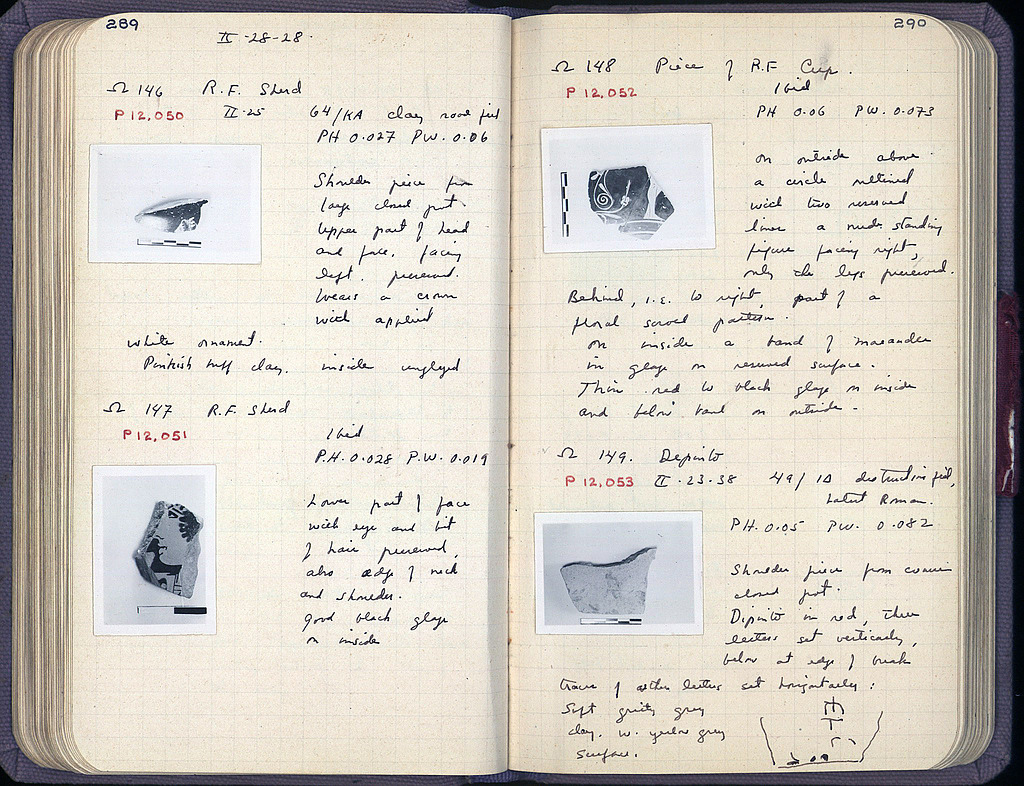 289
II-28-28.
Ω 146 R.F. Sherd
P 12,050 II-25 64/KA clay road fill
PH 0.027 PW. 0.06
Shoulder piece from
large closed pot
Upper part of head
and face, facing
left, preserved.
Wears a crown
with applied
white ornament.
Pinkish buff clay, inside unglazed
Ω 147 R.F. Sherd
P 12,051 Ibid
P.H. 0.028 P.W. 0.019
Lower part of face
with eye and bit
of hair preserved,
also edge of neck
and shoulder.
Good black glaze
on inside
290
Ω 148 Piece of R.F. Cup.
P 12,052 Ibid
PH 0.06 PW. 0.073
On outside above
a circle outlined
with two reserved
lines a nude standing
figure facing right,
only the legs preserved.
Behind, i.e. to right, part of a
floral scroll pattern.
On inside a band of maeander
in glaze on reserved surface.
Thin red to black glaze on inside
and below band on outside.
Ω 149. Dipinto
P 12,053 II-23-38 49/ΙΔ destruction fill,
latest Roman.
PH. 0.05 PW. 0.082
Shoulder piece from coarse
closed pot.
Dipinto in red, three
letters set vertically,
below at edge of break
traces of other letters set horizontally:
Soft gritty grey
clay, w. yellow grey
surface.